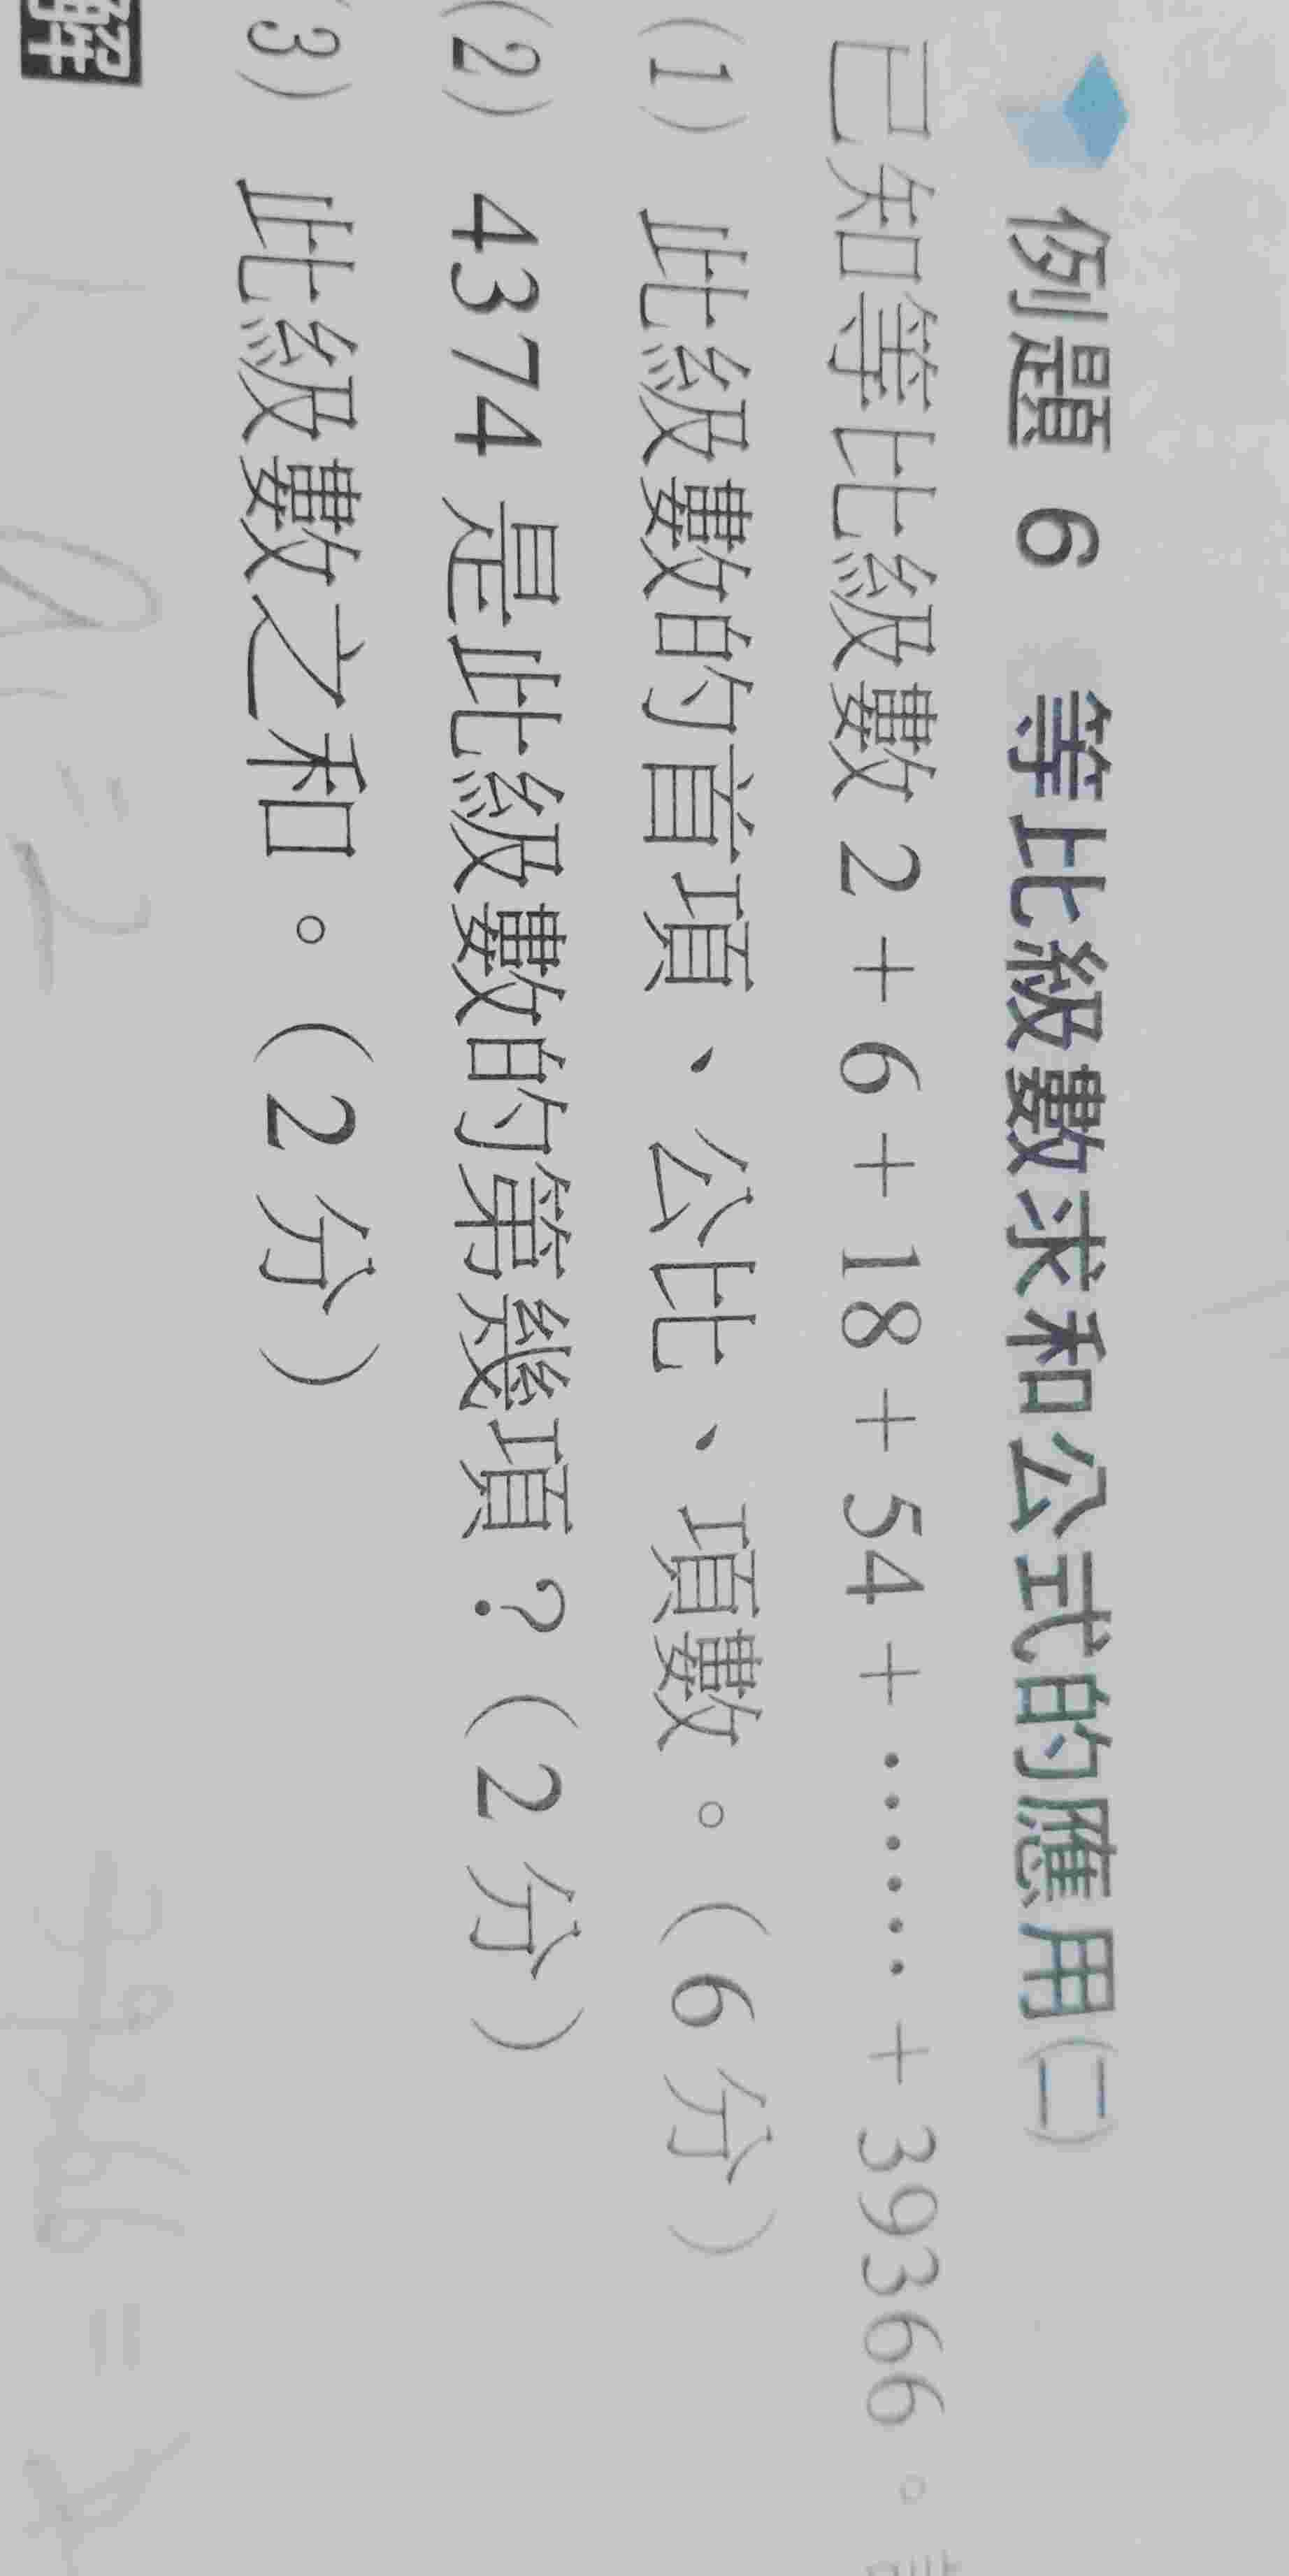 例題 6 等比級數求和公式的應用㈡
已知等比級數 2 + 6 + 18 + 54 + …… + 39366。
(1) 此級數的首項、公比、項數。(6 分)
(2) 4374 是此級數的第幾項?(2 分)
(3) 此級數之和。(2 分)
解